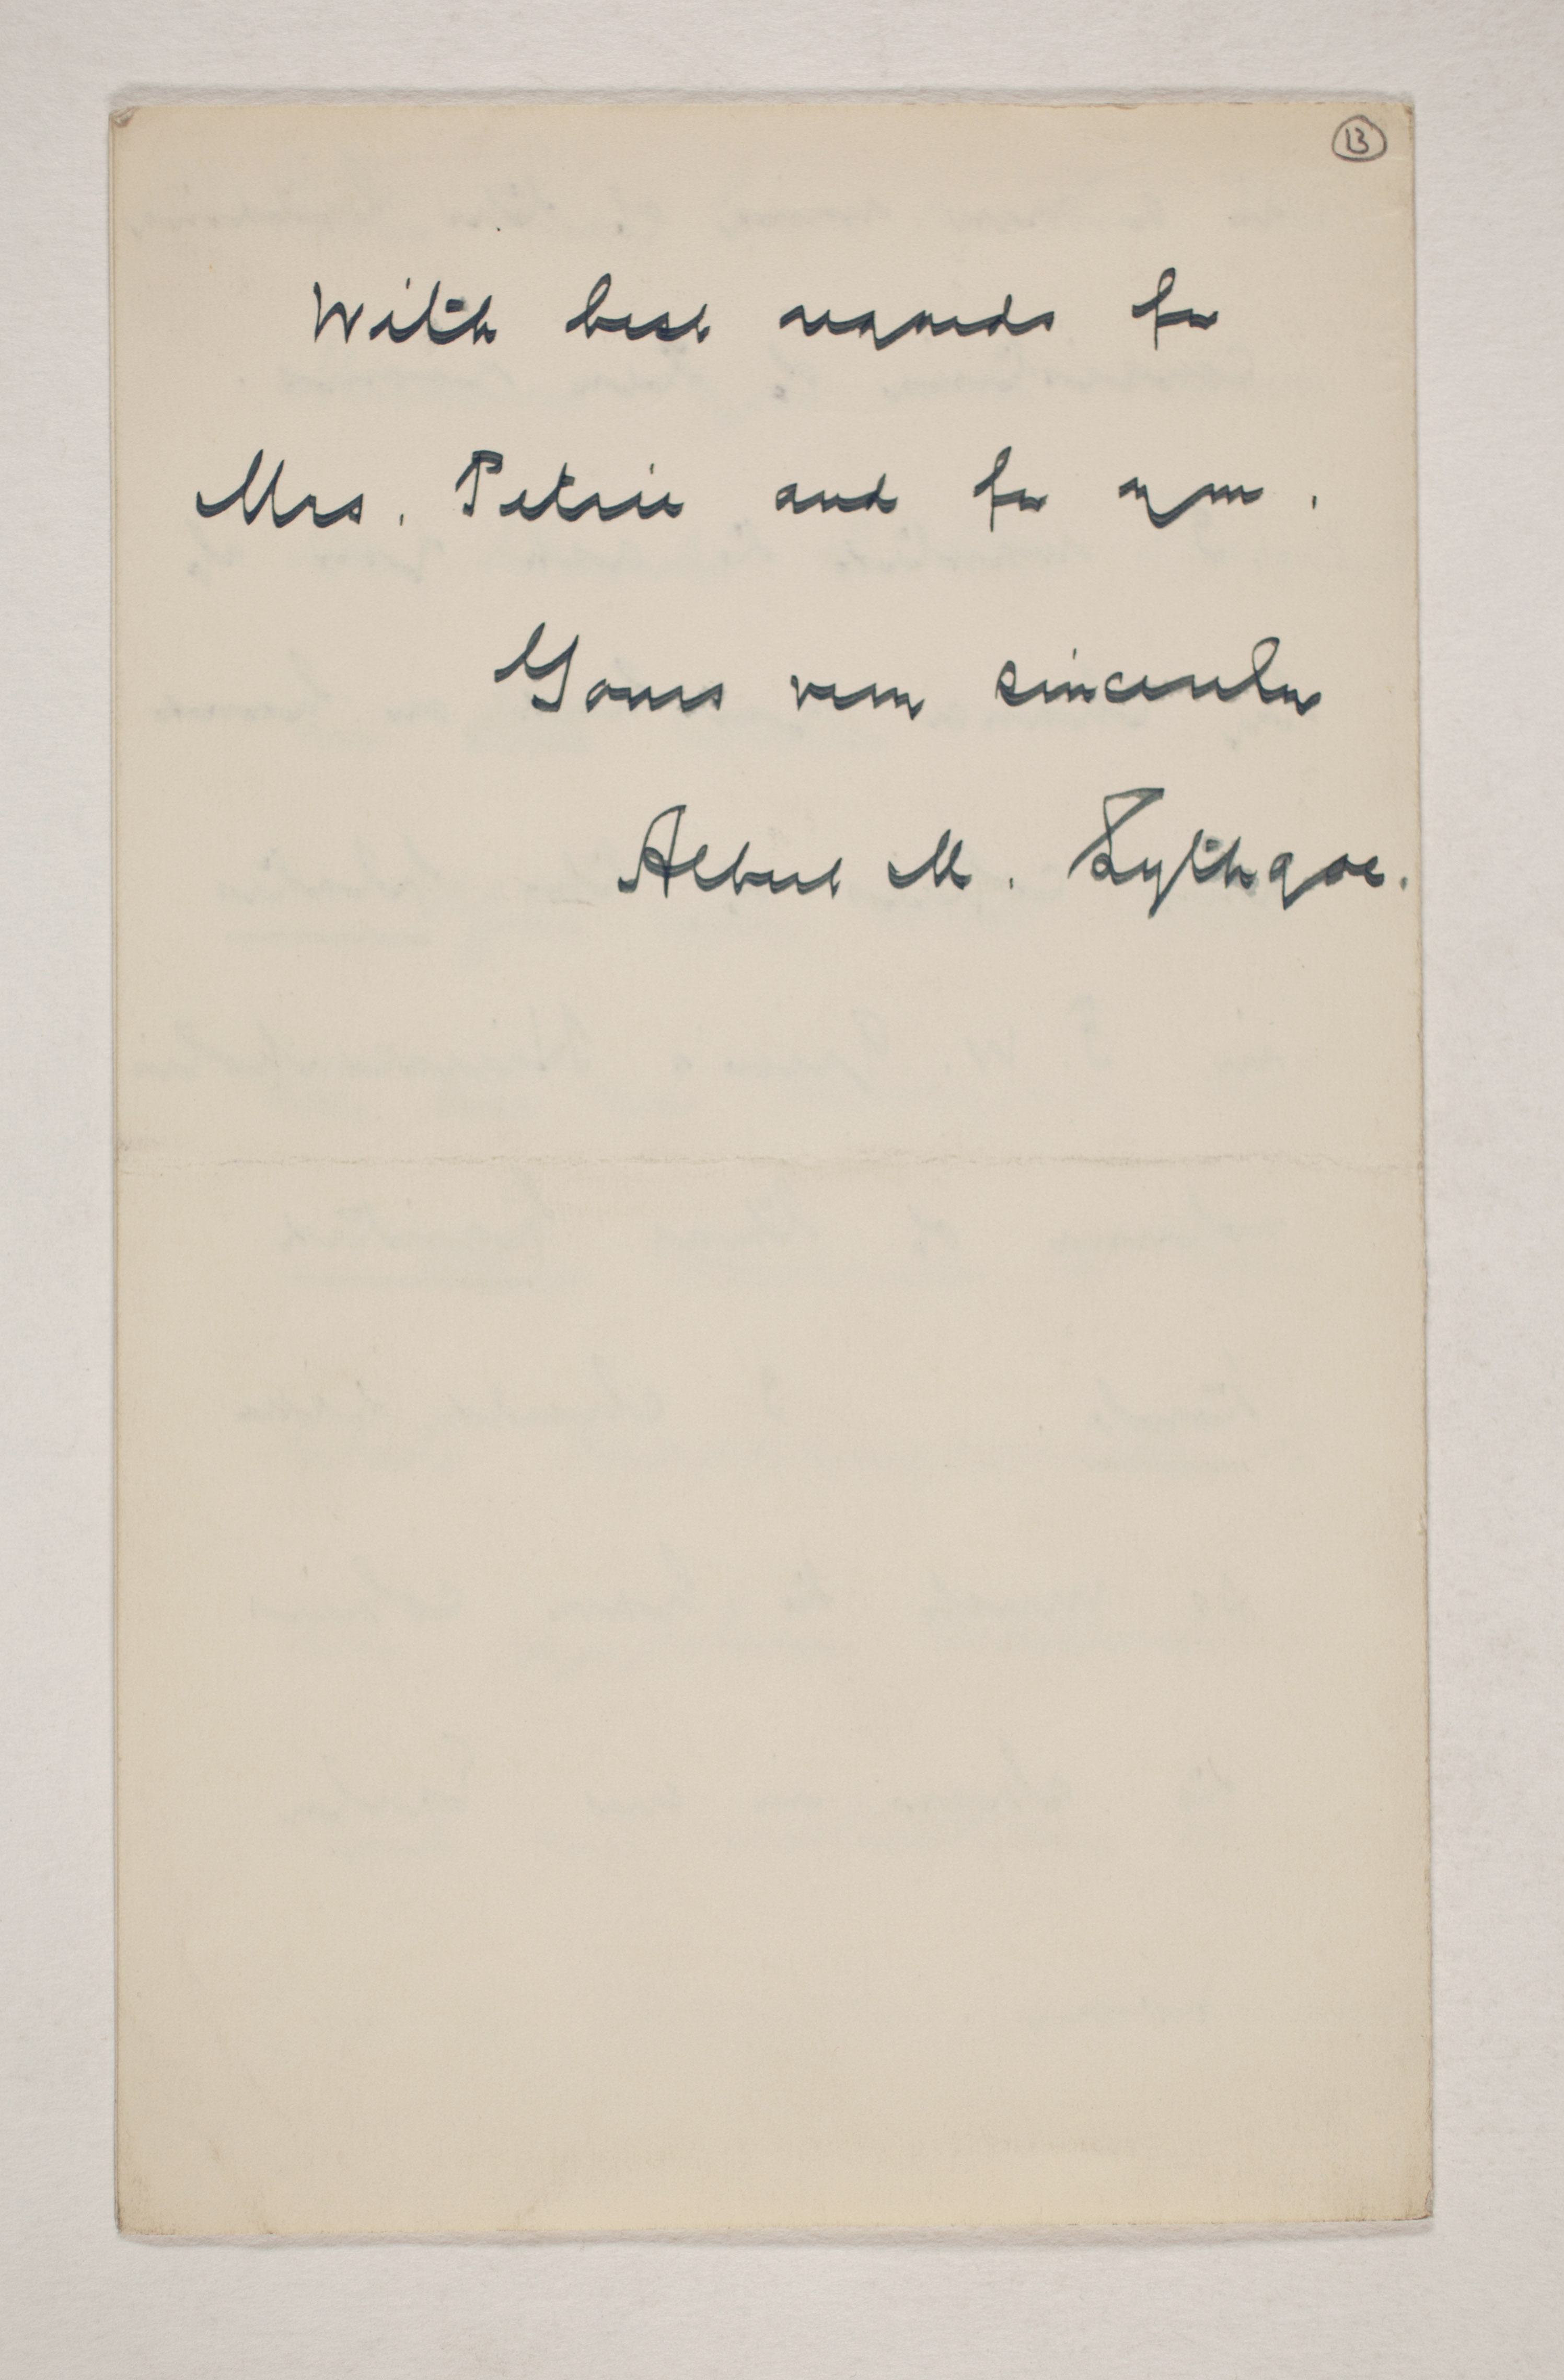 13
With best regards for
Mrs. Petrie and for you.
Yours very sincerely
Albert M. Lythgoe.